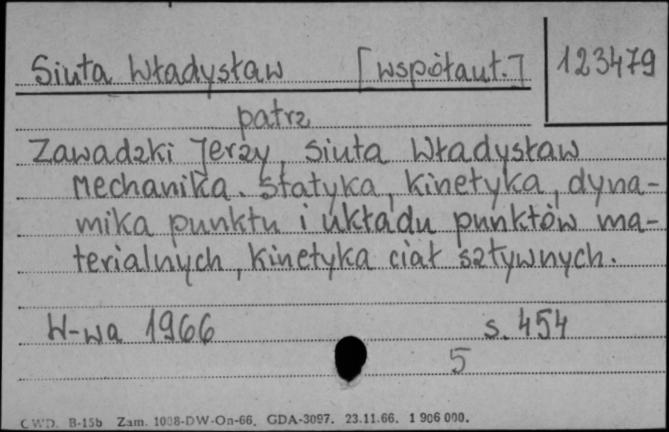 Siuta Władysław [współaut.] 123479
patrz
Zawadzki Jerzy, Siuta Władysław
Mechanika. Statyka, kinetyka, dyna-
mika punktu i układu punktów ma-
terialnych, kinetyka ciał sztywnych.
W-wa 1966 s. 454
5
CWD. B-15b Zam. 1038-DW-On-66. GDA-3097. 23.11.66. 1 906 000.